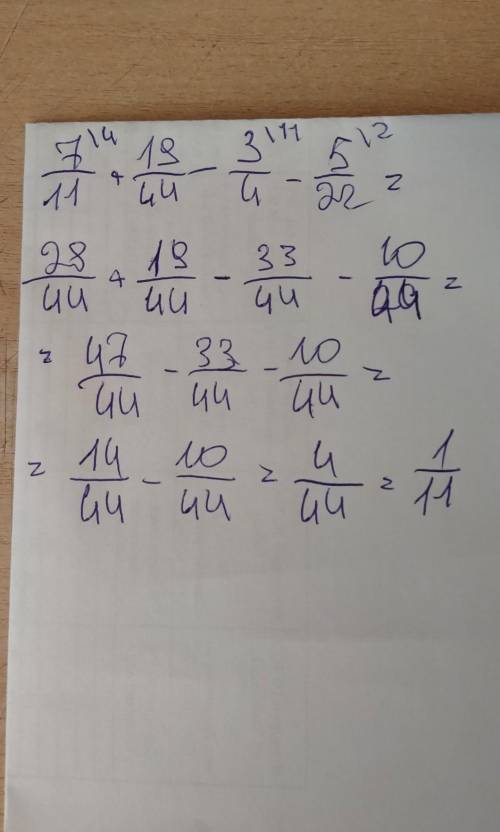 7\4/11 + 19/44 - 3\11/4 - 5\2/22 =
28/44 + 19/44 - 33/44 - 10/44 =
= 47/44 - 33/44 - 10/44 =
= 14/44 - 10/44 = 4/44 = 1/11